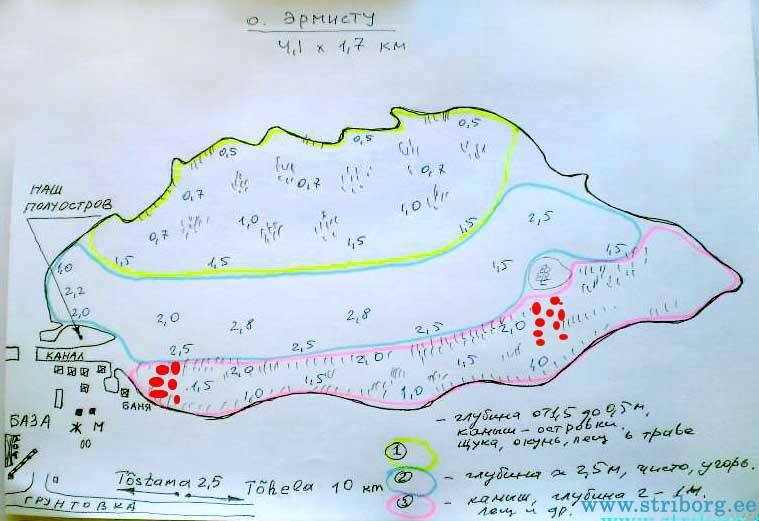 о. ЭРМИСТУ
4,1 х 1,7 км
0,5
0,5
0,5
0,7
0,7
0,7
1,0
1,0
0,7
1,5
1,5
1,5
1,5
2,5
1,5
1,5
НАШ
ПОЛУОСТРОВ
1,0
2,2
2,0
2,0
2,8
2,8
2,5
2,5
2,5
2,0
2,0
2,0
1,5
1,0
1,5
1,0
1,5
1,0
КАНАЛ
БАНЯ
БАЗА
Ж М
Tõstama 2,5
Tõhela 10 км
ГРУНТОВКА
- глубина от 1,5 до 0,5 м,
камыш - островки.
щука, окунь, лещ в траве
1
2 - глубина х 2,5 м, чисто, угорь.
3 - камыш, глубина 2 - 1м.
лещ и др.
www.striborg.ee